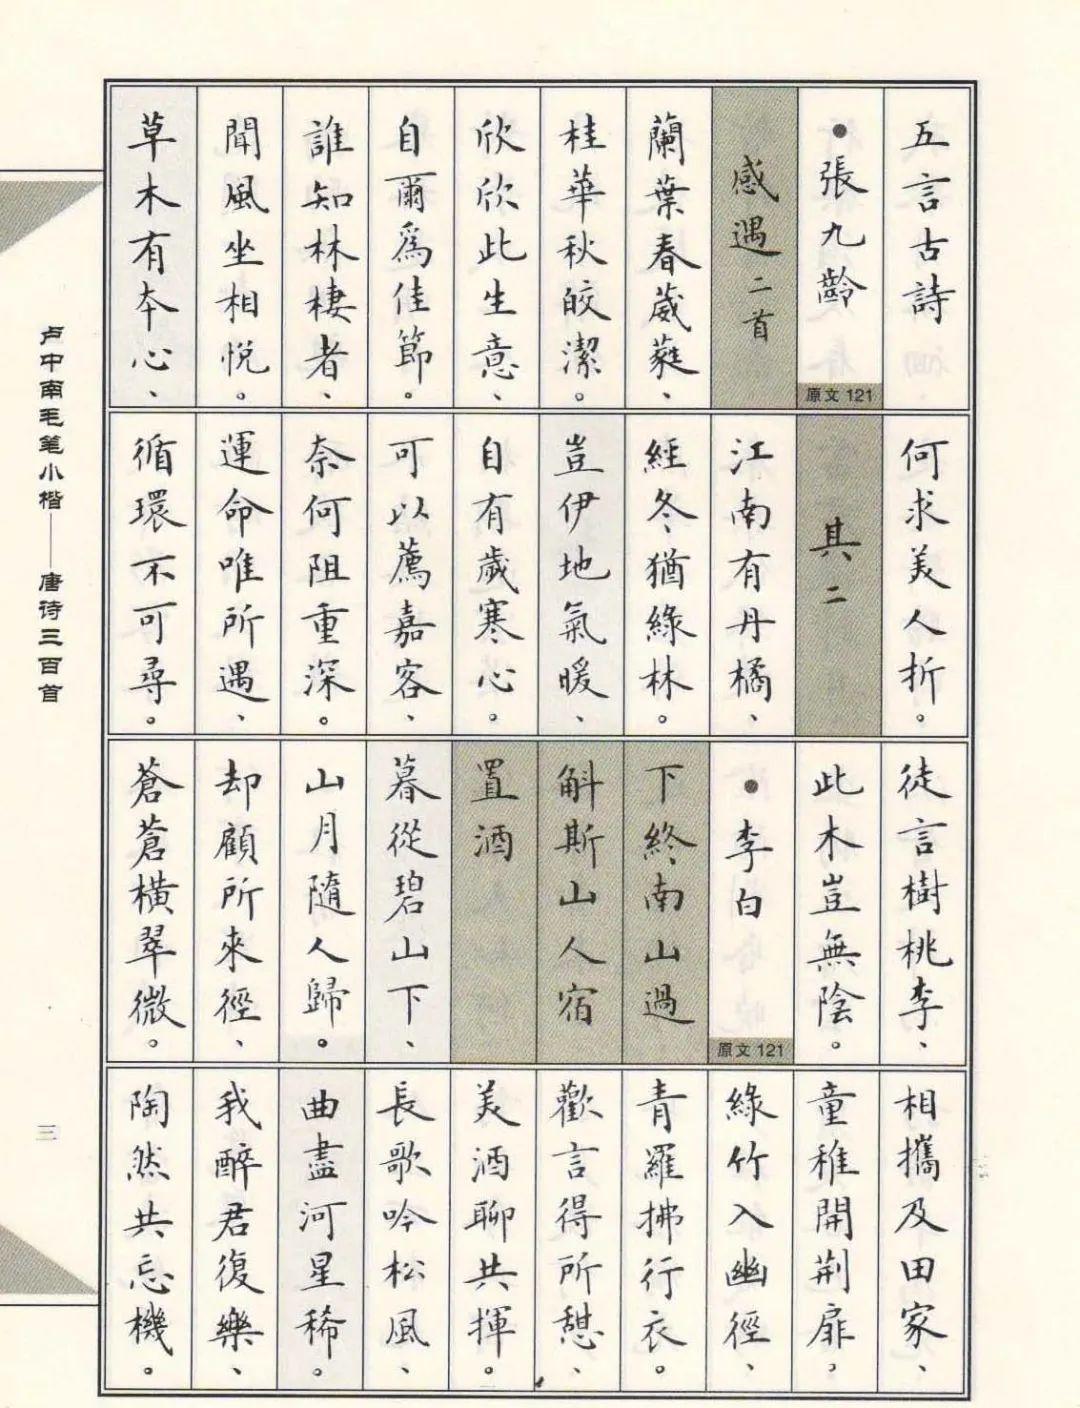 五言古詩
●張九齡
原文 121
感遇二首
蘭葉春葳蕤、
桂華秋皎潔。
欣欣此生意、
自爾爲佳節。
誰知林棲者、
聞風坐相悅。
草木有本心、
何求美人折。
其二
江南有丹橘、
經冬猶綠林。
豈伊地氣暖、
自有歲寒心。
可以薦嘉客、
奈何阻重深。
運命唯所遇、
循環不可尋。
徒言樹桃李、
此木豈無陰。
●李白
原文 121
下終南山過
斛斯山人宿
置酒
暮從碧山下、
山月隨人歸。
却顧所來徑、
蒼蒼橫翠微。
相攜及田家、
童稚開荆扉。
綠竹入幽徑、
青羅拂行衣。
歡言得所憩、
美酒聊共揮。
長歌吟松風、
曲盡河星稀。
我醉君復樂、
陶然共忘機。
卢中南毛笔小楷——唐诗三百首
三